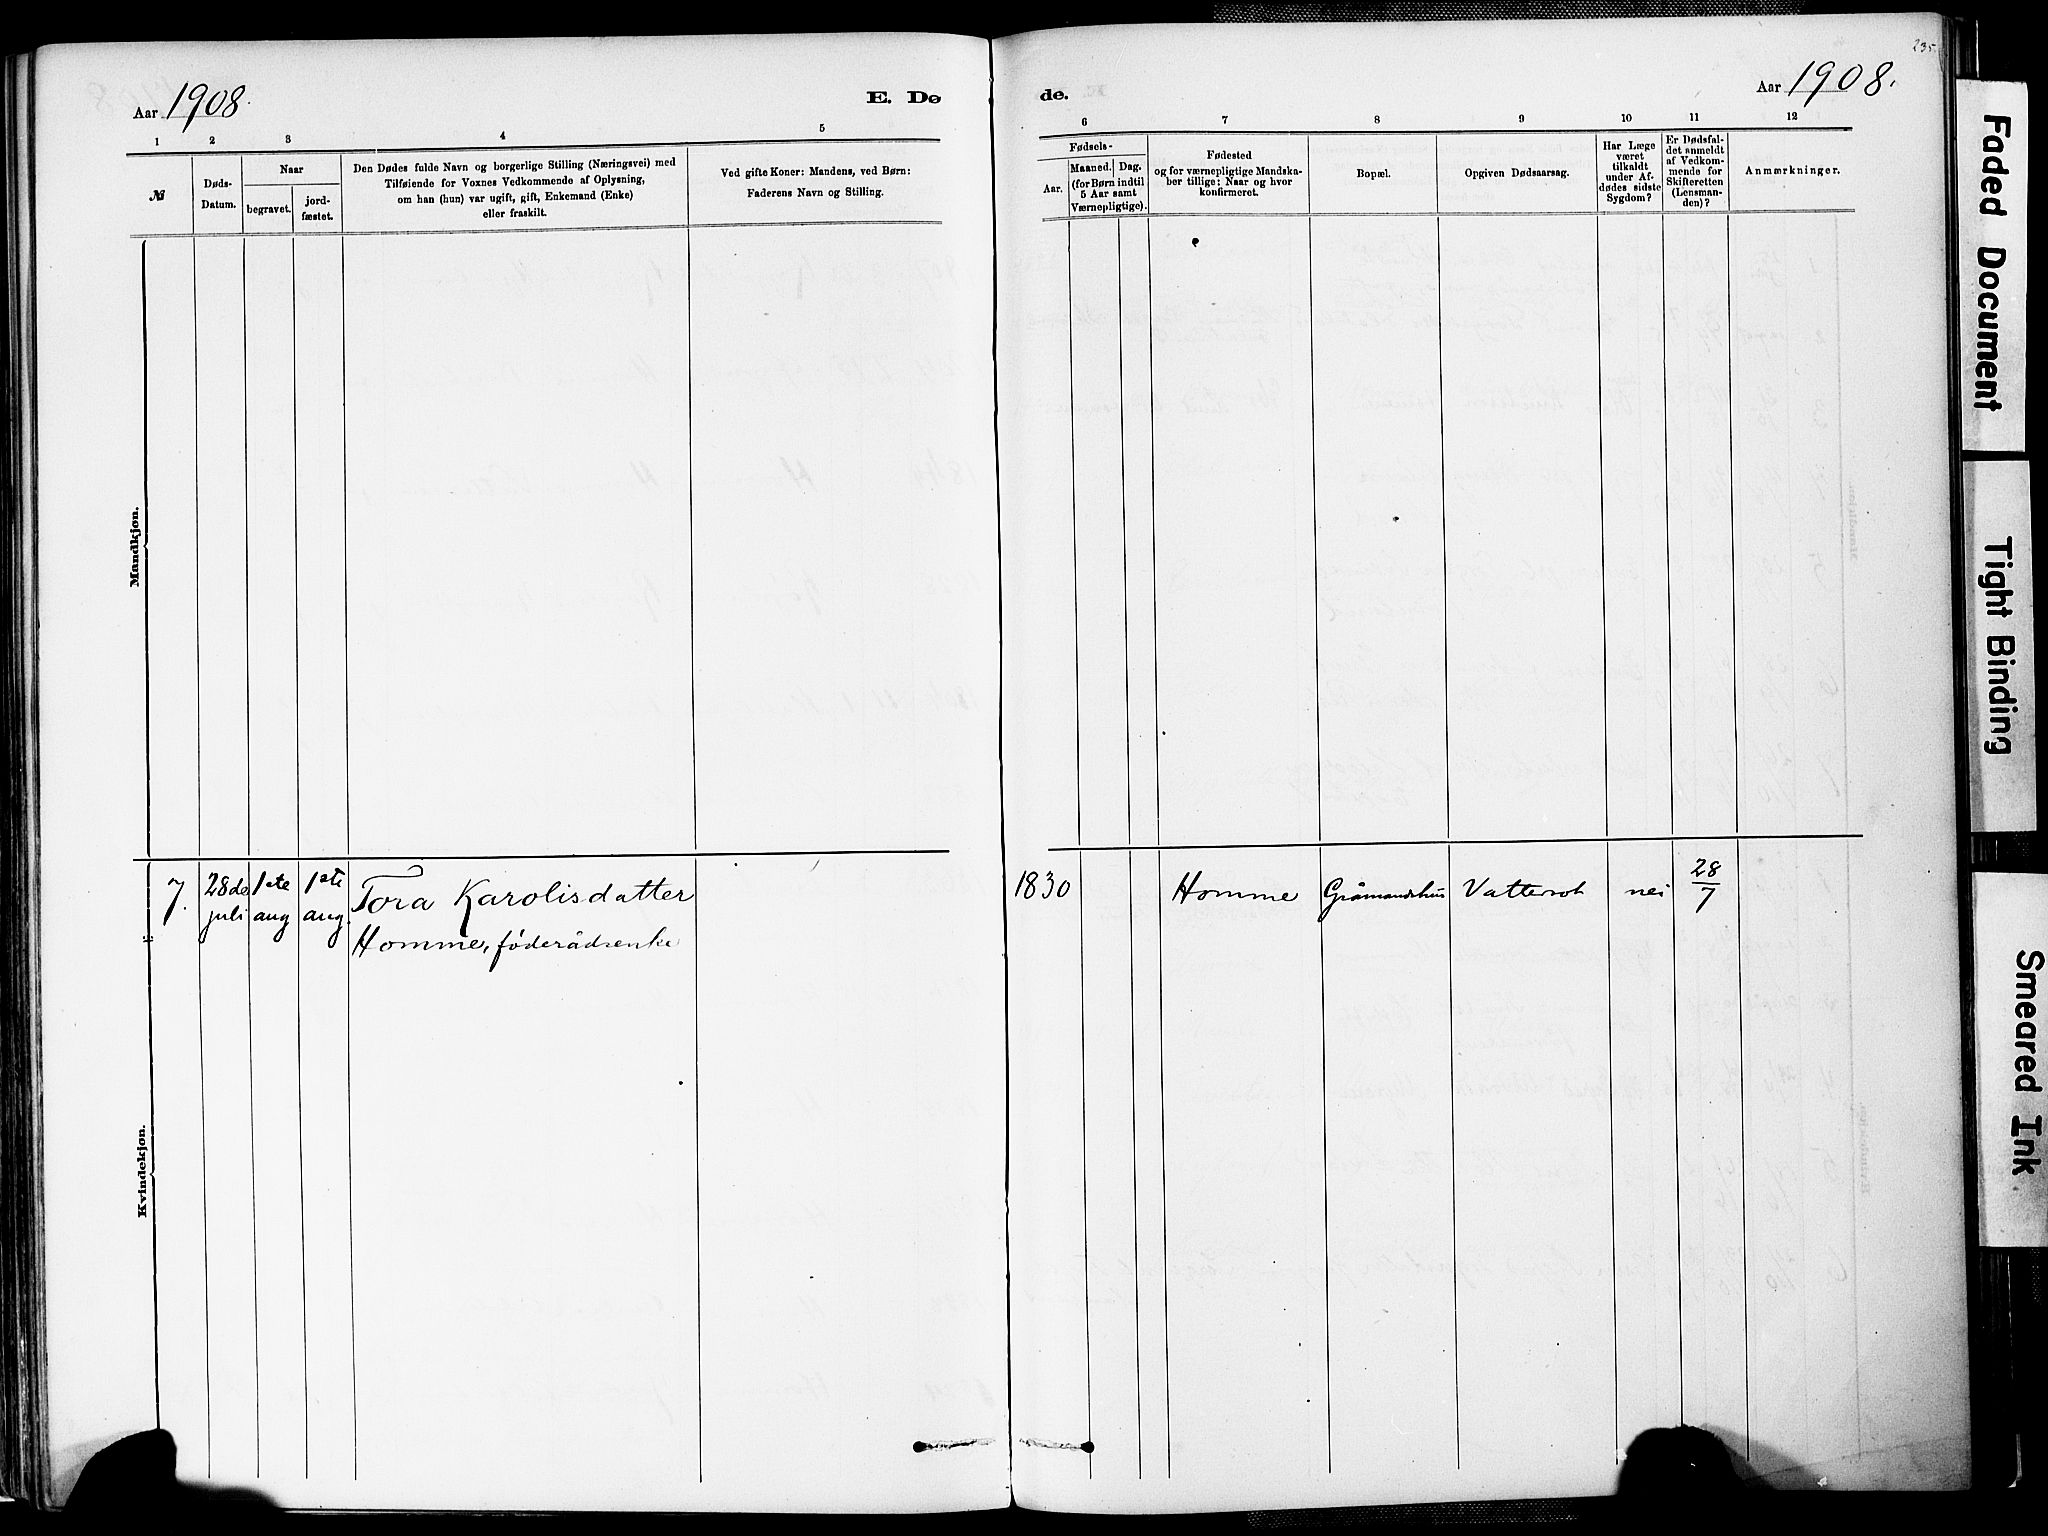 235.
Aar 1908.
E. Dø
de.
Aar 1908.
1 2 3 4 5
6 7 8 9 10 11 12
№
Døds-
Datum.
Naar
begravet.
jord-
fæstet.
Den Dødes fulde Navn og borgerlige Stilling (Næringsvei) med
Tilføiende for Voxnes Vedkommende af Oplysning,
om han (hun) var ugift, gift, Enkemand (Enke)
eller fraskilt.
Ved gifte Koner: Mandens, ved Børn:
Faderens Navn og Stilling.
Fødsels-
Aar.
Maaned. Dag.
(for Børn indtil
5 Aar samt
Værnepligtige).
Fødested
og for værnepligtige Mandska-
ber tillige; Naar og hvor
konfirmeret.
Bopæl.
Opgiven Dødsaarsag.
Har Læge
været
tilkaldt
under Af-
dødes sidste
Sygdom?
Er Dødsfal-
det anmeldt
af Vedkom-
mende for
Skifteretten
(Lensman-
den)?
Anmærkninger.
Mandkjøn.
7. 28de 1ste 1ste Tora Karolisdatter 1830 Homme Gråmandshus Vattersot nei 28/7
juli aug aug. Homme, føderådsenke
Kvindekjøn.
Faded Document
Tight Binding
Smeared Ink